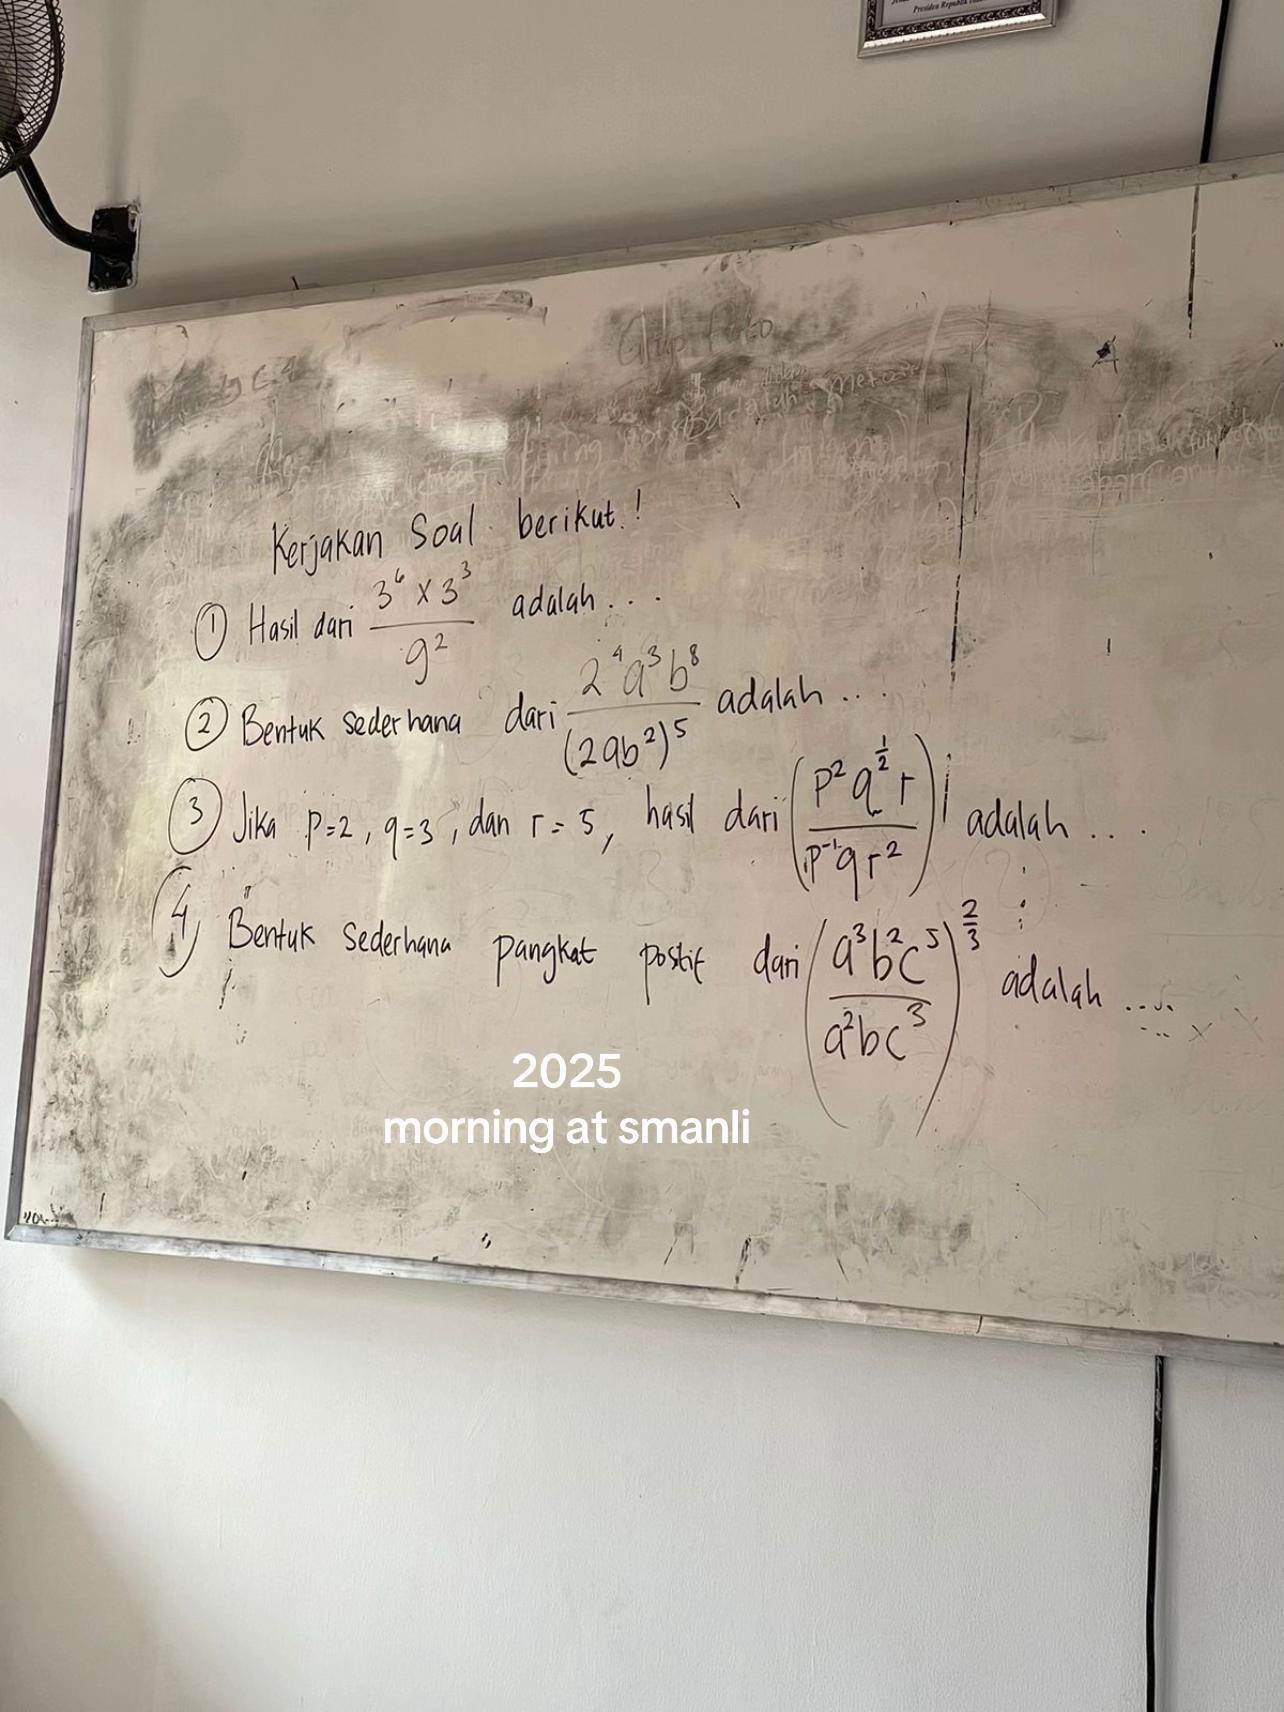 Presiden Republik
Kerjakan Soal berikut!
① Hasil dari (3⁶ x 3³)/9² adalah...
② Bentuk sederhana dari (2⁴a³b⁸)/(2ab²)⁵ adalah...
③ Jika p=2, q=3, dan r=5, hasil dari ((p²q^(1/2)r)/(p⁻¹qr²)) adalah...
④ Bentuk Sederhana pangkat postif dari ((a³b²c⁵)/(a²bc³))^(2/3) adalah...
2025
morning at smanli